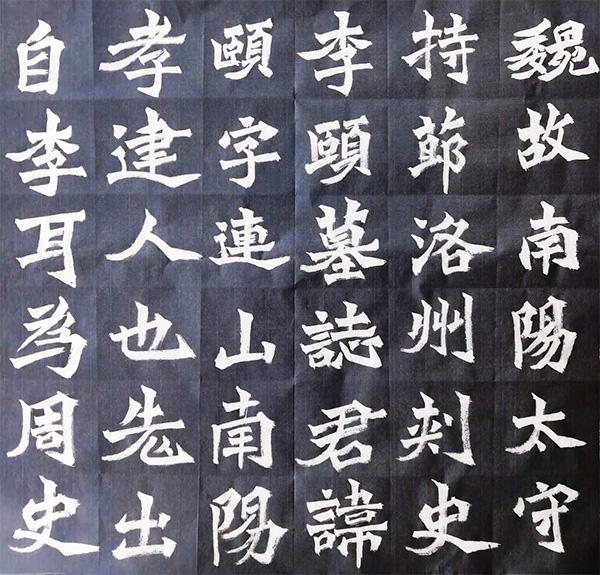 魏故南陽太守
持節洛州刾史
李頤墓誌君諱
頤字連山南陽
孝建人也先出
自李耳為周史